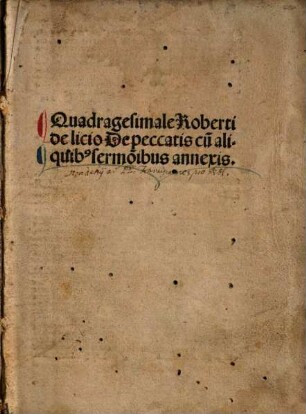 Quadragesimale Roberti
de licio De peccatis cū ali-
qͥbꝰ sermōibus annexis.